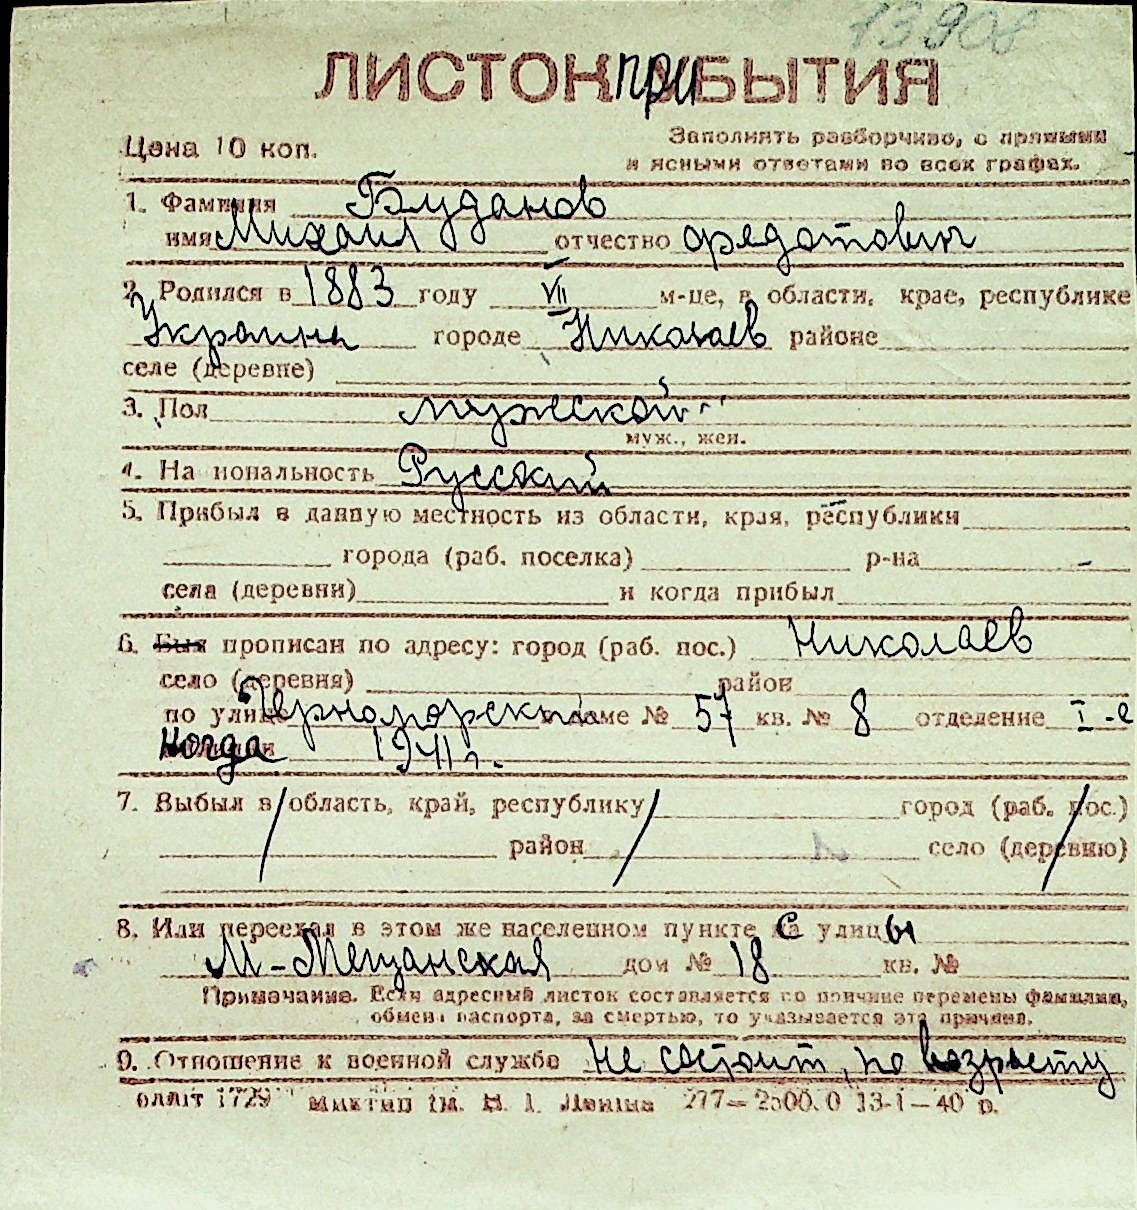 13908
ЛИСТОК ПРИБЫТИЯ
Цена 10 коп.
Заполнять разборчиво, с прямыми
и ясными ответами во всех графах.
1. Фамилия Буданов
имя Михаил отчество Федотович
2. Родился в 1883 году VII м-це, в области, крае, республике
Украина городе Николаев районе
селе (деревне)
3. Пол мужской
муж., жен.
4. Национальность Русский
5. Прибыл в данную местность из области, края, республики
города (раб. поселка) р-на
села (деревни) и когда прибыл
6. Был прописан по адресу: город (раб. пос.) Николаев
село (деревня) район
по улице Черноморский доме № 57 кв. № 8 отделение I-е
когда 1941 г.
7. Выбыл в область, край, республику город (раб. пос.)
район село (деревню)
8. Или переехал в этом же населенном пункте с улицы
М-Мещанская дом № 18 кв. №
Примечание. Если адресный листок составляется по причине перемены фамилии,
обмена паспорта, за смертью, то указывается эта причина.
9. Отношение к военной службе не состоит, по возрасту
1729 ім. В. І. Леніна 277—2500.0 13-I—40 р.